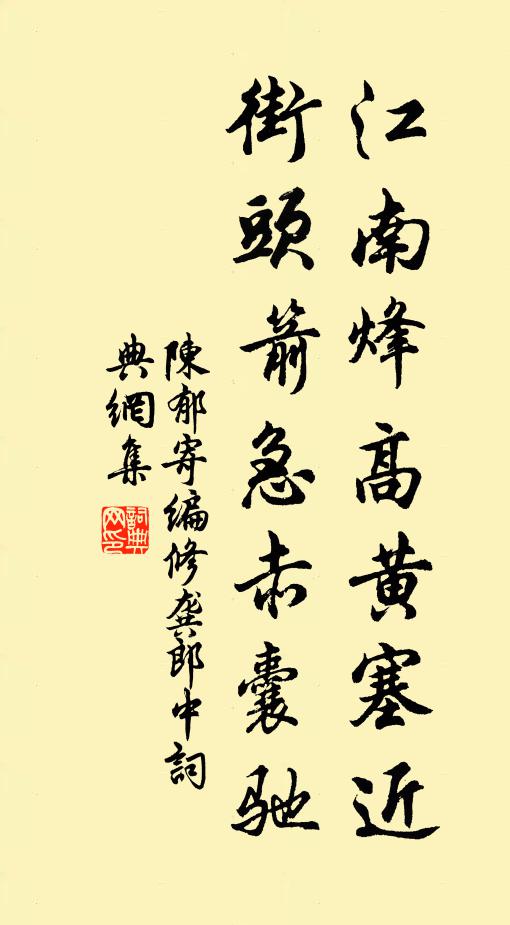 江南烽高黄塞近
街頭箭急赤囊馳
陳郁寄編修龔郎中詞
典網集
詞典
网印